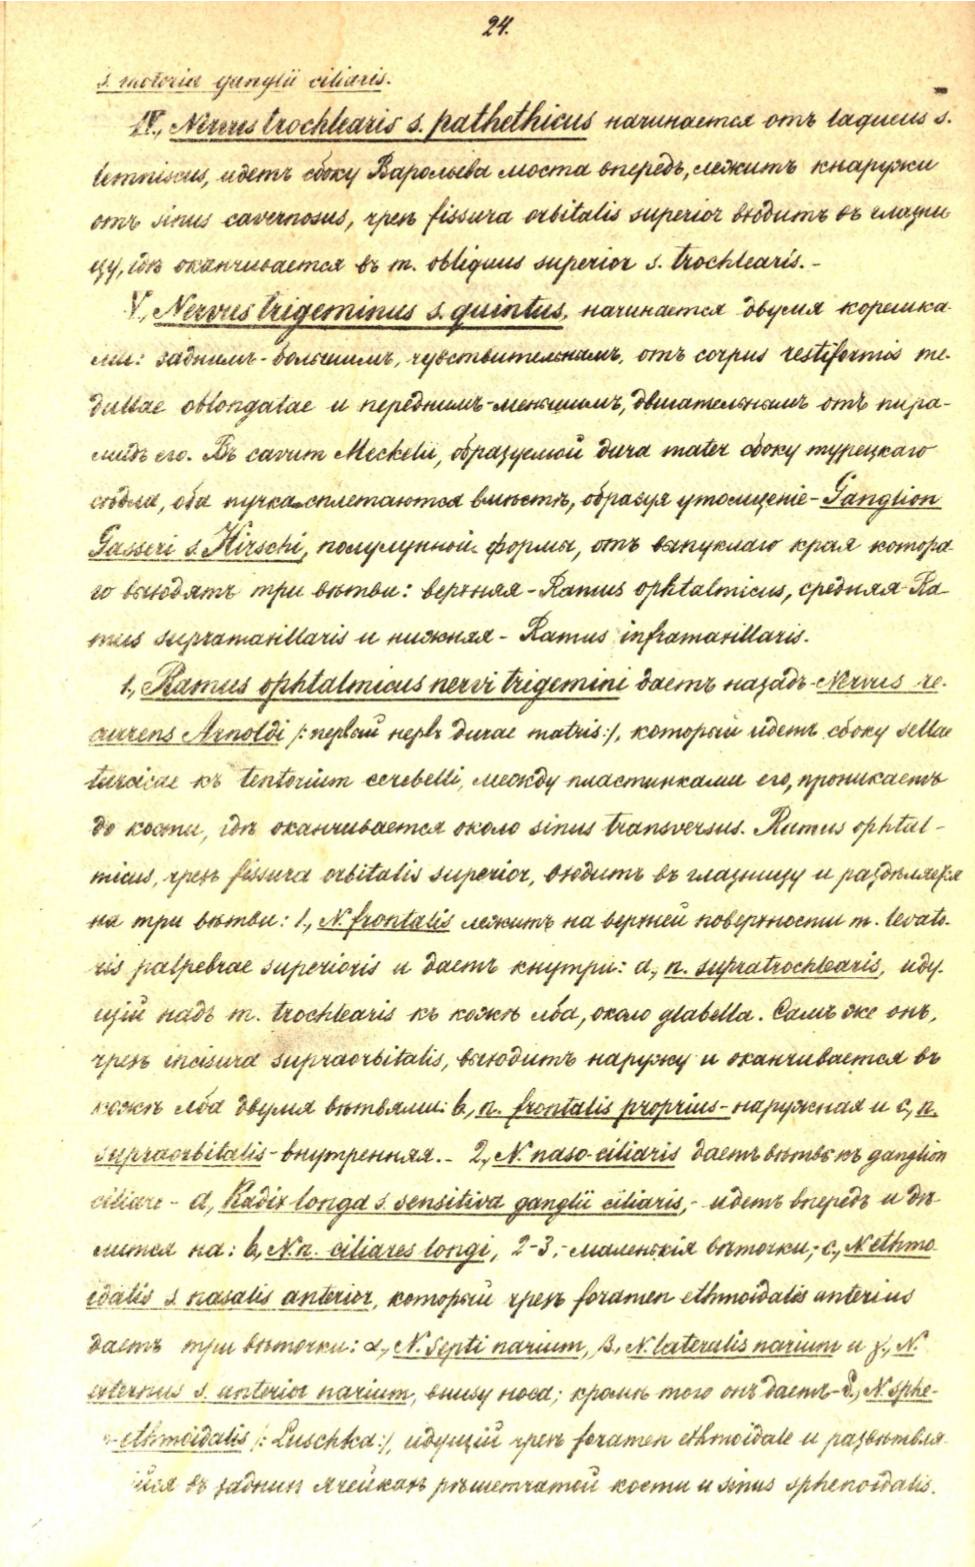 24.
s. motoria ganglii ciliaris.
IV., Nervus trochlearis s. pathethicus начинается отъ laqueus s.
lemniscus, идетъ сбоку Варольева моста впередъ, лежитъ кнаружи
отъ sinus cavernosus, чрезъ fissura orbitalis superior входитъ въ глазни
цу, гдѣ оканчивается въ m. obliquus superior s. trochlearis.-
V., Nervus trigeminus s. quintus, начинается двумя корешка
ми: заднимъ-большимъ, чувствительнымъ, отъ corpus restiformis me-
dullae oblongatae и переднимъ-меньшимъ, двигательнымъ отъ пира-
мидъ его. Въ cavum Meckelii, образуемой dura mater сбоку турецкаго
сѣдла, оба пучка сплетаются вмѣстѣ, образуя утолщеніе - Ganglion
Gasseri s. Hirschi, полулунной формы, отъ выпуклаго края котора
го выходятъ три вѣтви: верхняя - Ramus ophtalmicus, средняя - Ra-
mus supramaxillaris и нижняя - Ramus inframaxillaris.
1., Ramus ophtalmicus nervi trigemini даетъ назадъ - Nervus re-
currens Arnoldi /:первый нервъ durae matris:/, который идетъ сбоку sellae
turcicae къ tentorium cerebelli, между пластинками его, проникаетъ
до кости, гдѣ оканчивается около sinus transversus. Ramus ophtal-
micus, чрезъ fissura orbitalis superior, входитъ въ глазницу и раздѣляется
на три вѣтви: 1., N. frontalis лежитъ на верхней поверхности m. levato-
ris palpebrae superioris и даетъ кнутри: a., n. supratrochlearis, иду-
щій надъ m. trochlearis къ кожѣ лба, около glabella. Самъ же онъ,
чрезъ incisura supraorbitalis, выходитъ наружу и оканчивается въ
кожѣ лба двумя вѣтвями: b., n. frontalis proprius - наружная и c., n.
supraorbitalis - внутренняя.- 2., N. naso-ciliaris даетъ вѣтвь къ ganglion
ciliare - a., Radix longa s. sensitiva ganglii ciliaris,- идетъ впередъ и дѣ
лится на: b., N.n. ciliares longi, 2-3,- маленькія вѣточки,- c., N. ethmo
idalis s. nasalis anterior, который чрезъ foramen ethmoidalis anterius
даетъ три вѣточки: α., N. Septi narium, β., N. lateralis narium и γ., N.
externus s. anterior narium, внизу носа; кромѣ того онъ даетъ - d., N. sphe-
ethmoidalis /:Luschka:/, идущій чрезъ foramen ethmoidale и развѣтвля
ійся въ заднихъ ячейкахъ рѣшетчатой кости и sinus sphenoidalis.